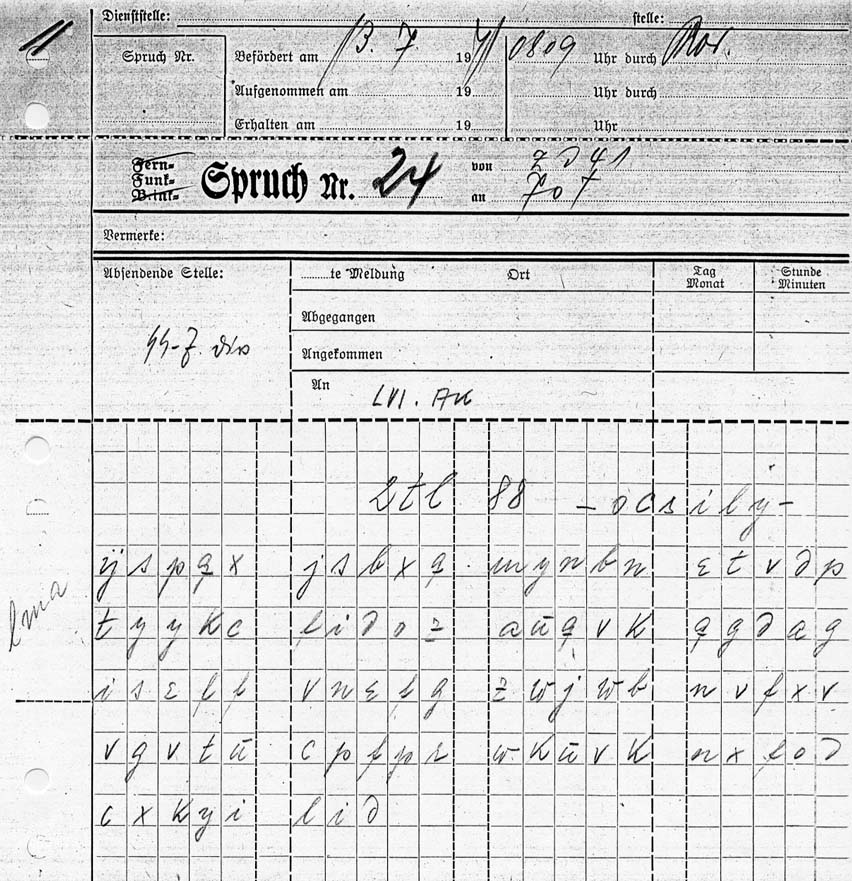 Dienststelle: stelle:
Spruch Nr. Befördert am 13. 7 1941 0809 Uhr durch
Aufgenommen am 19 Uhr durch
Erhalten am 19 Uhr
Fern=
Funk=
Blink=
Spruch Nr. 24 von
an
Vermerke:
Absendende Stelle: te Meldung Ort Tag Monat Stunde Minuten
Abgegangen
SS-T. Div Angekommen
An LVI. AK
2tl 88 - ocsily -
yspqx jsbxq mynbn etvdp
tyykc fidoz auqvk qgdag
iseff vnefg zwjwb nvfxv
vgvtu cpfpr wkuvk nxfod
cxkyi lid